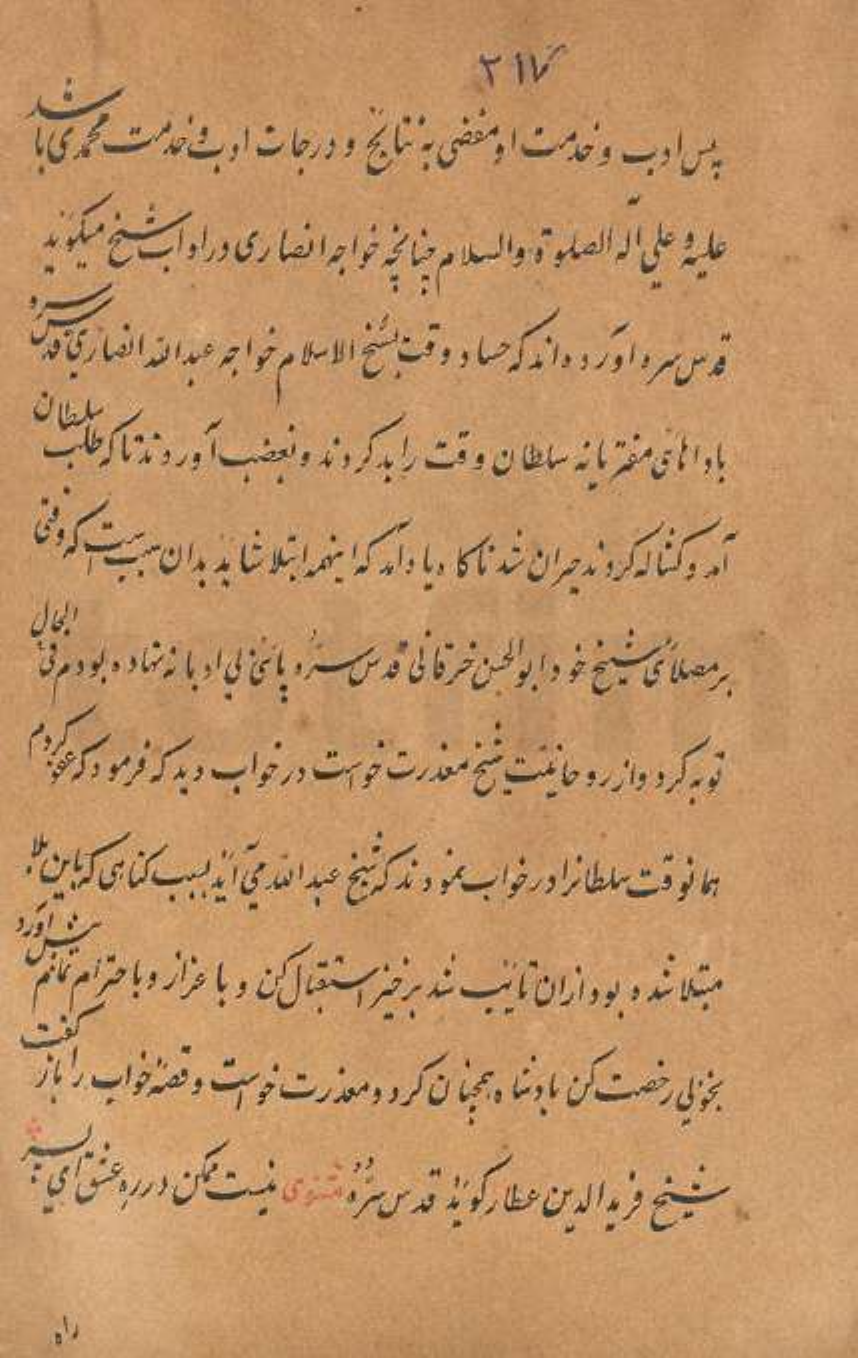 ۲۱۷
پس ادب و خدمت او مفضی به نتایج و درجات ادب و خدمت محمدی باشد
علیه و علی آله الصلوة والسلام چنانچه خواجه انصاری در اداب شیخ میگوید
قدس سره اورده‌اند که حساد وقت شیخ الاسلام خواجه عبدالله انصاری قدس سره
باداهای مفتریانه سلطان وقت را بد کردند و بغضب آوردند تا که طلب سلطان
آمد و کشاله کردند حیران شد ناکاه یاد آمد که اینهمه ابتلا شاید بدان سبب است که وقتی
بر مصلای شیخ خود ابوالحسن خرقانی قدس سره پائی بی ادبانه نهاده بودم فی الحال
توبه کرد و از روحانیت شیخ معذرت خواست در خواب دید که فرمود که عفو کردم
همانوقت سلطانرا در خواب نمودند که شیخ عبدالله می آید بسبب کناهی که باین بلا
مبتلا شده بود ازان تائب شد برخیز استقبال کن و با عزاز و با حترام تمام پیش آورد
بخوبی رخصت کن بادشاه همچنان کرد و معذرت خواست و قصه خواب را باز کفت
شیخ فریدالدین عطار کوید قدس سره مثنوی نیست ممکن در ره عشق ای پسر
راه